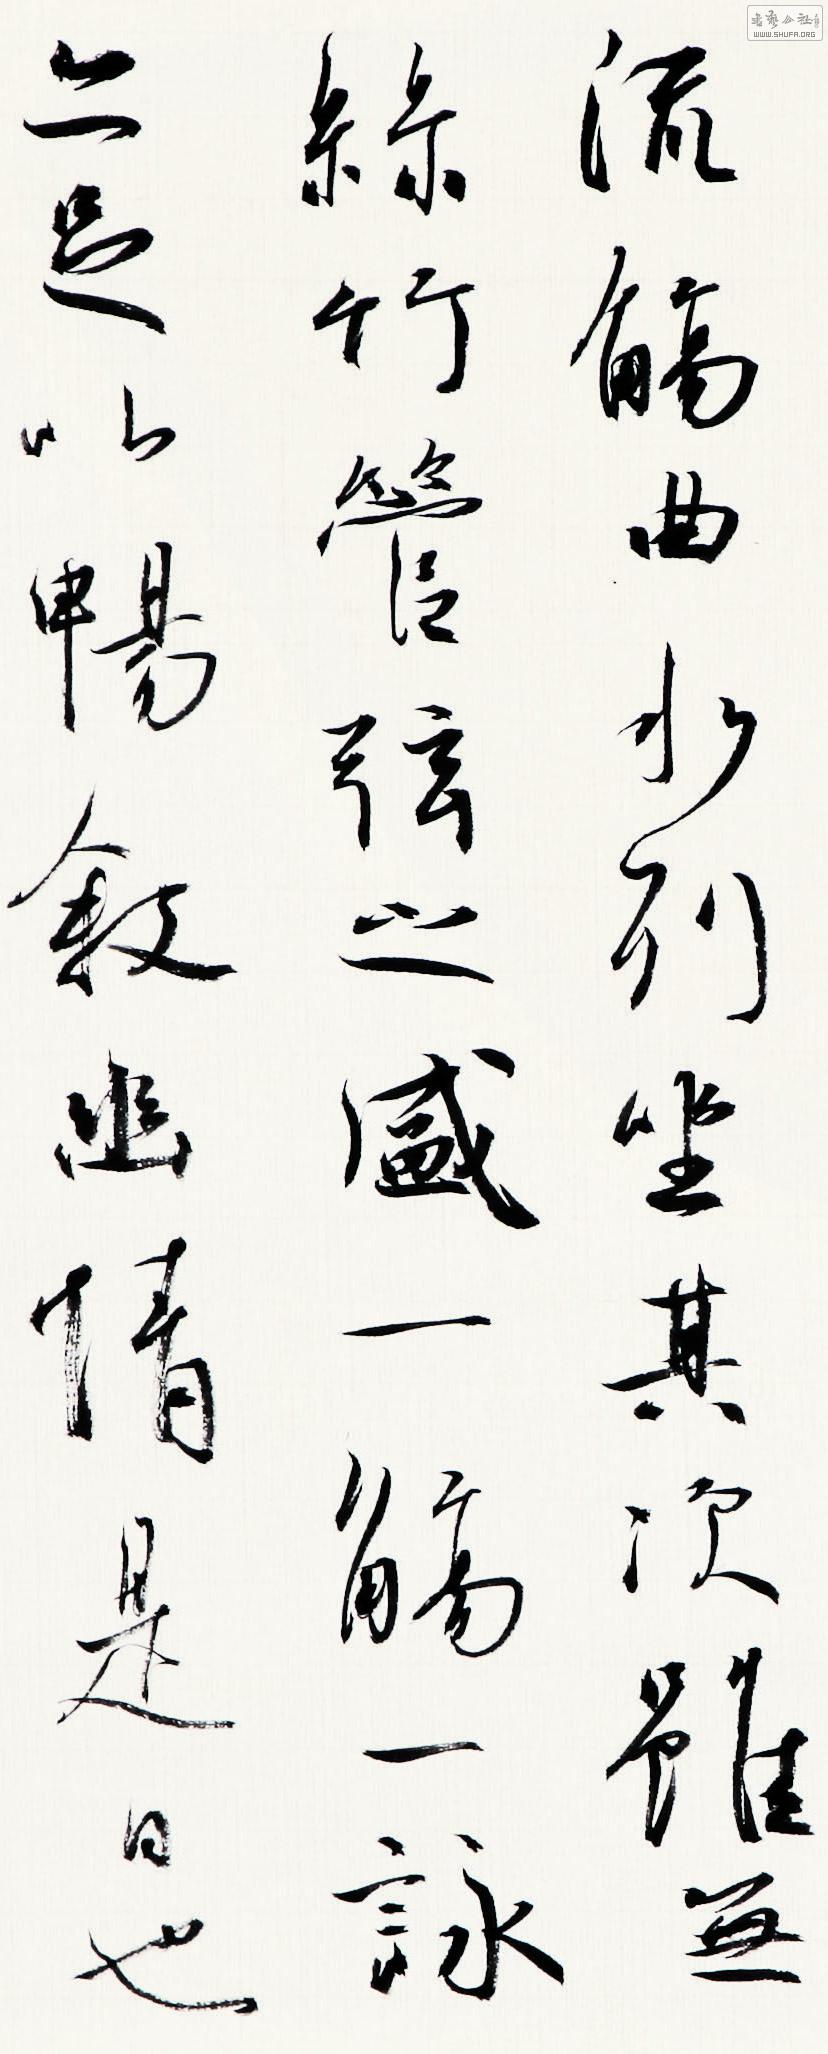 流觴曲水列坐其次雖無
絲竹管弦之盛一觴一詠
亦足以暢敘幽情是日也
書藝公社
WWW.SHUFA.ORG